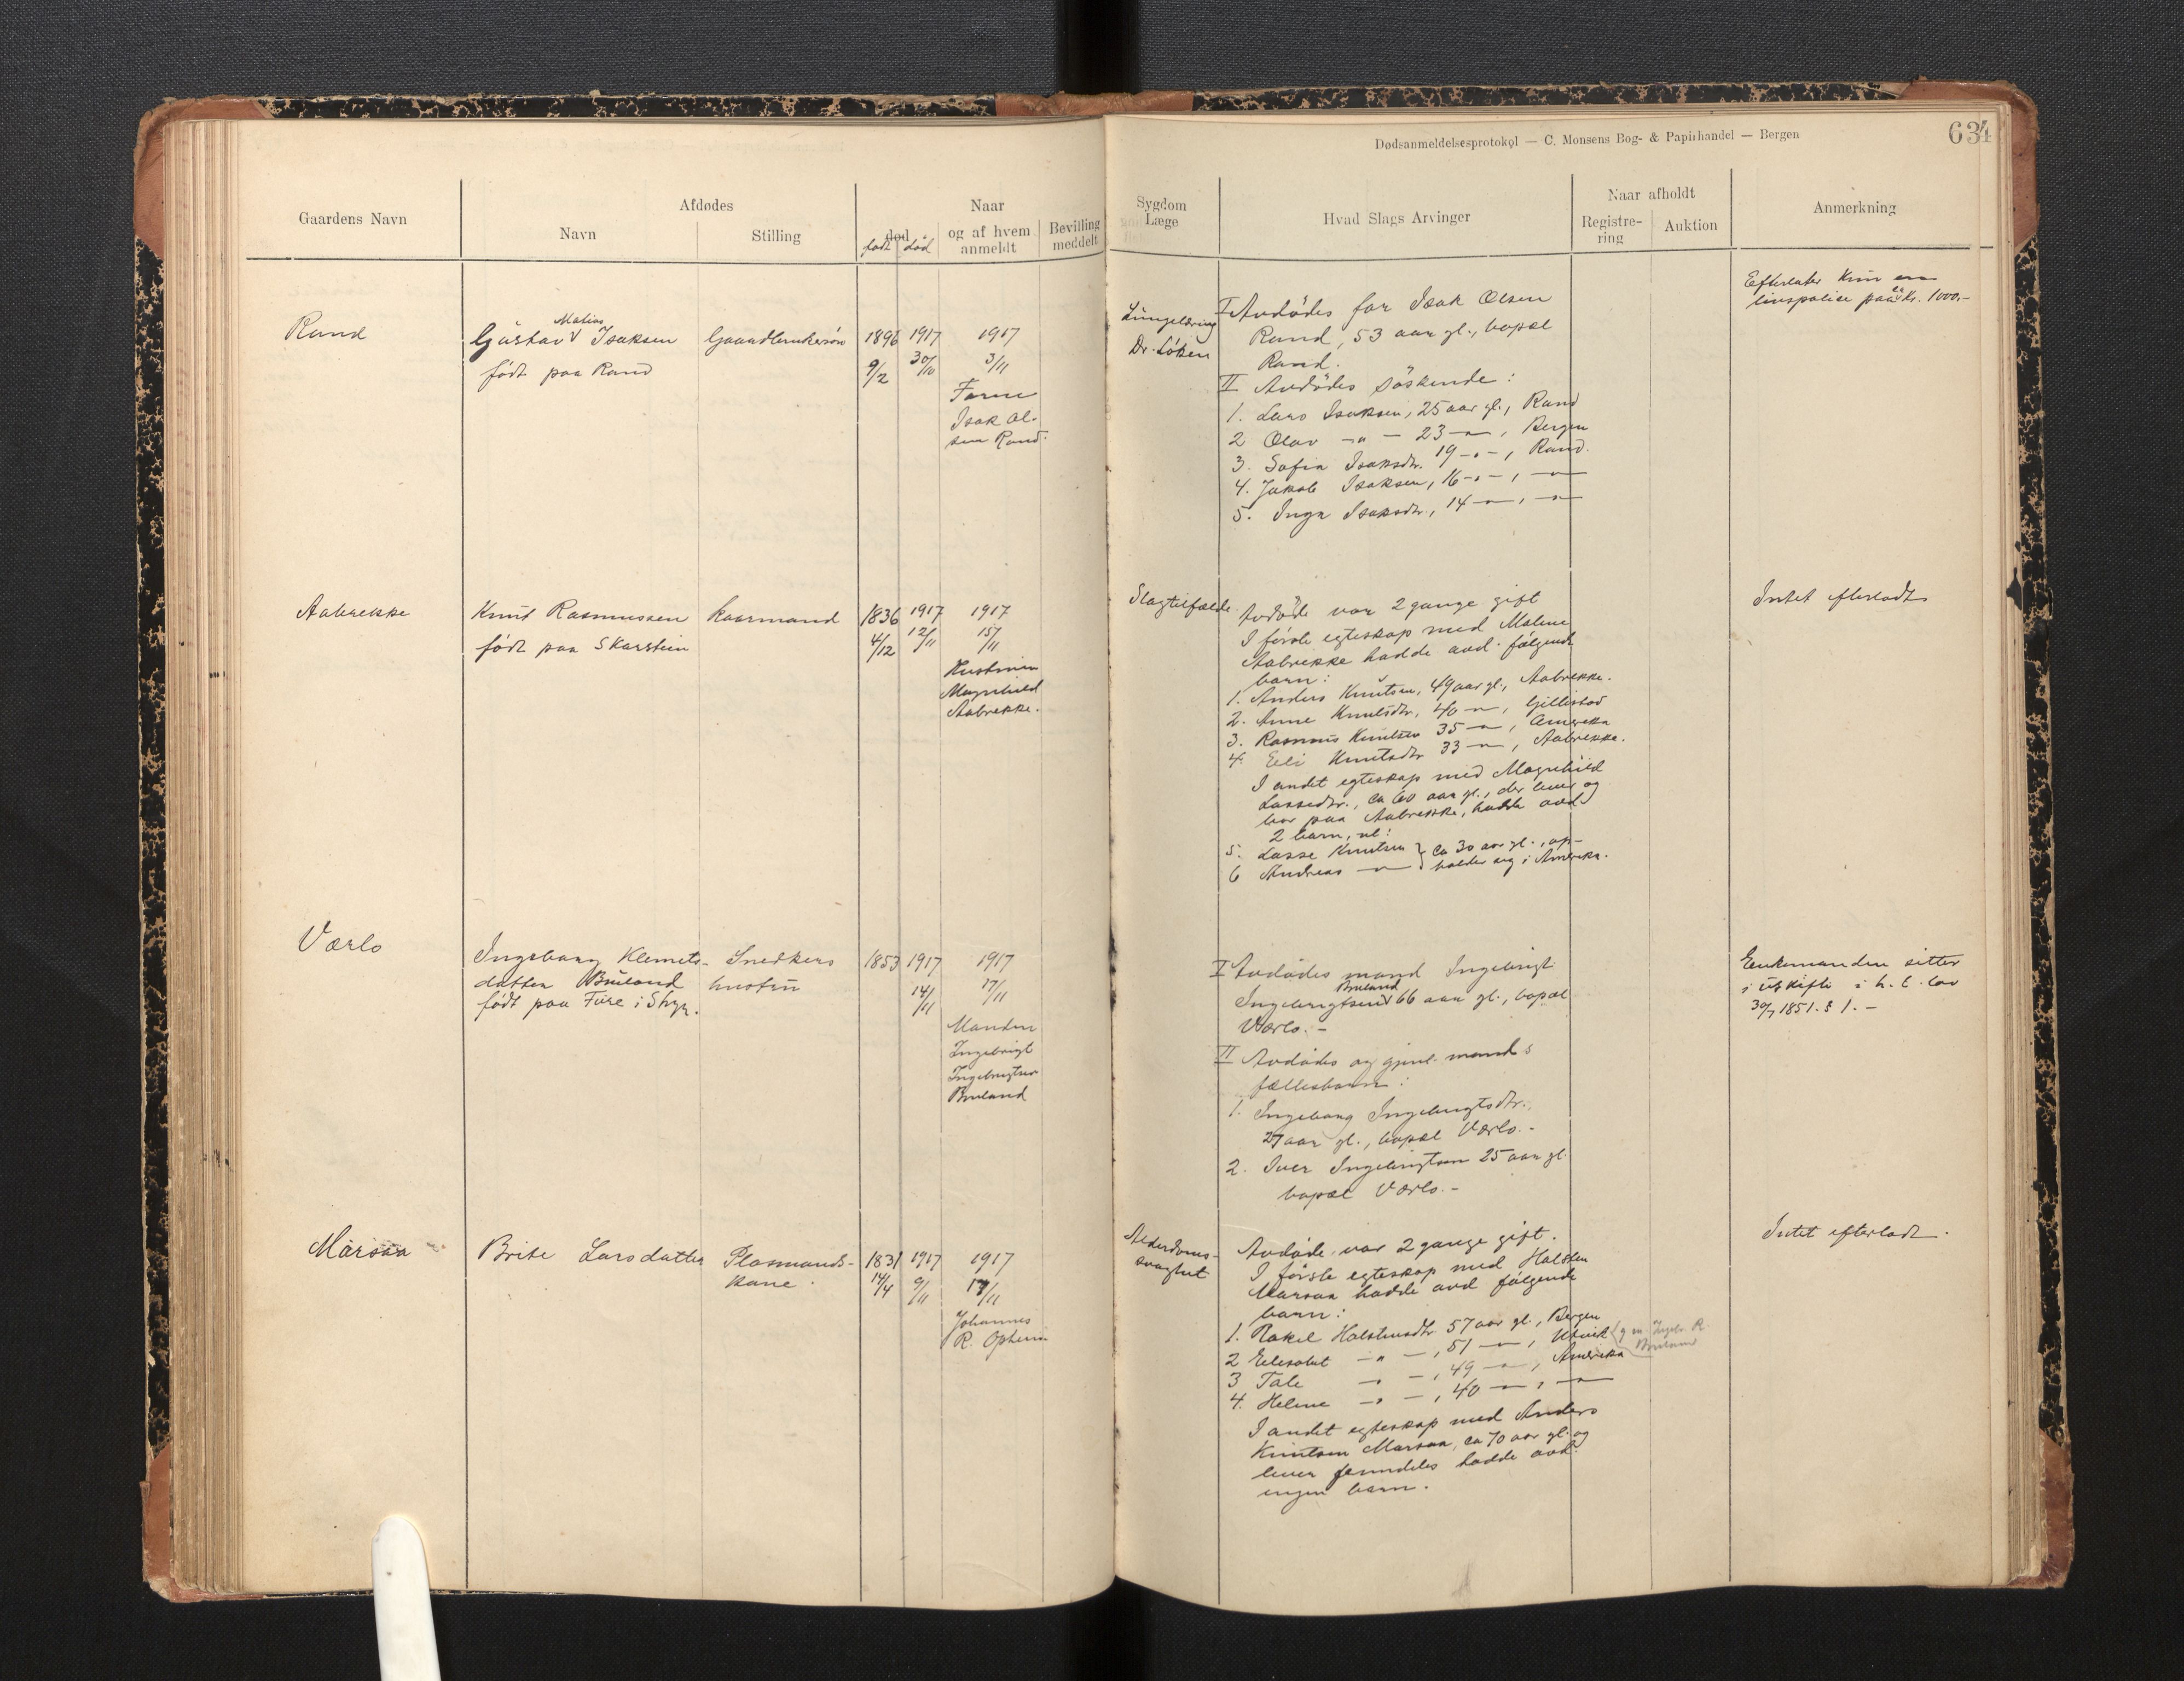 Dødsanmeldelsesprotokol — C. Monsens Bog- & Papirhandel — Bergen
634
Gaardens Navn
Afdødes
Navn
Stilling
Naar
død
født død
og af hvem
anmeldt
Bevilling
meddelt
Sygdom
Læge
Hvad Slags Arvinger
Naar afholdt
Registre-
ring
Auktion
Anmerkning
Rand
Matias
Gustav V Isaksen
født paa Rand
Gaardbrukersøn
1896
9/2
1917
30/10
1917
3/11
Faren
Isak Ol-
sen Rand.
Dr. Löken
I Avdödes far Isak Olsen
Rand, 53 aar gl., bopæl
Rand.
II Avdödes söskende:
1. Lars Isaksen, 25 aar gl., Rand
2 Olav -"- 23 -"-, Bergen
3. Sofia Isaksdtr. 19 -"-, Rand.
4. Jakob Isaksen, 16 -"-, -"-
5. Inga Isaksdtr., 14 -"-, -"-
Efterlater kun en
livspolise paa Kr. 1000,-
Aabrekke
Knut Rasmussen
født paa Skarstein
Kaarmand
1836
4/12
1917
12/11
1917
15/11
Hustruen
Magnhild
Aabrekke.
Slagtilfælde.
Avdöde var 2 gange gift
I förste egteskap med Malene
Aabrekke hadde avd. følgende
barn:
1. Anders Knutsen, 49 aar gl., Aabrekke.
2. Anne Knutsdtr, 40 -"-, Gjillestad
3. Rasmus Knutsen 35 -"-, Amerika
4. Eli Knutsdtr 33 -"-, Aabrekke.
I andet egteskap med Magnhild
Lassedtr., ca 60 aar gl., der lever og
bor paa Aabrekke, hadde avd.
2 barn, nl:
5. Lasse Knutsen } ca 30 aar gl., op-
6 Andreas -"- } holder sig i Amerika.
Intet efterladt
Værlo
Ingeborg Klemets-
datter Bruland
født paa Fure i Stryn.
Snedkers
hustru
1853
1917
14/11
1917
17/11
Manden
Ingebrigt
Ingebrigtsen
Bruland
I Avdödes mand Ingebrigt
Bruland
Ingebrigtsen V 66 aar gl., bopæl
Værlo. -
II Avdödes og gjenl. mands
fællesbarn:
1. Ingeborg Ingebrigtsdtr.,
27 aar gl., bopæl Værlo. -
2. Iver Ingebrigtsen 25 aar gl.
bopæl Værlo. -
Enkemanden sitter
i uskifte i h. t. lov
30/7 1851. § 1. -
Marsaa
Brite Larsdatter
Plasmands-
kone.
1831
14/4
1917
9/11
1917
17/11
Johannes
R. Opheim
Alderdoms-
svaghet
Avdöde var 2 gange gift.
I förste egteskap med Halsten
Marsaa hadde avd følgende
barn:
1. Rakel Halstensdtr. 57 aar gl., Bergen
2 Elisabet -"-, 51 -"-, Utvik (g m Ingebr. R.
Bruland
3 Tale -"-, 49 -"-, Amerika
4. Helene -"-, 40 -"-, -"-
I andet egteskap med Anders
Knutsen Marsaa, ca 70 aar gl. og
lever fremdeles hadde avd.
ingen barn.
Intet efterladt.